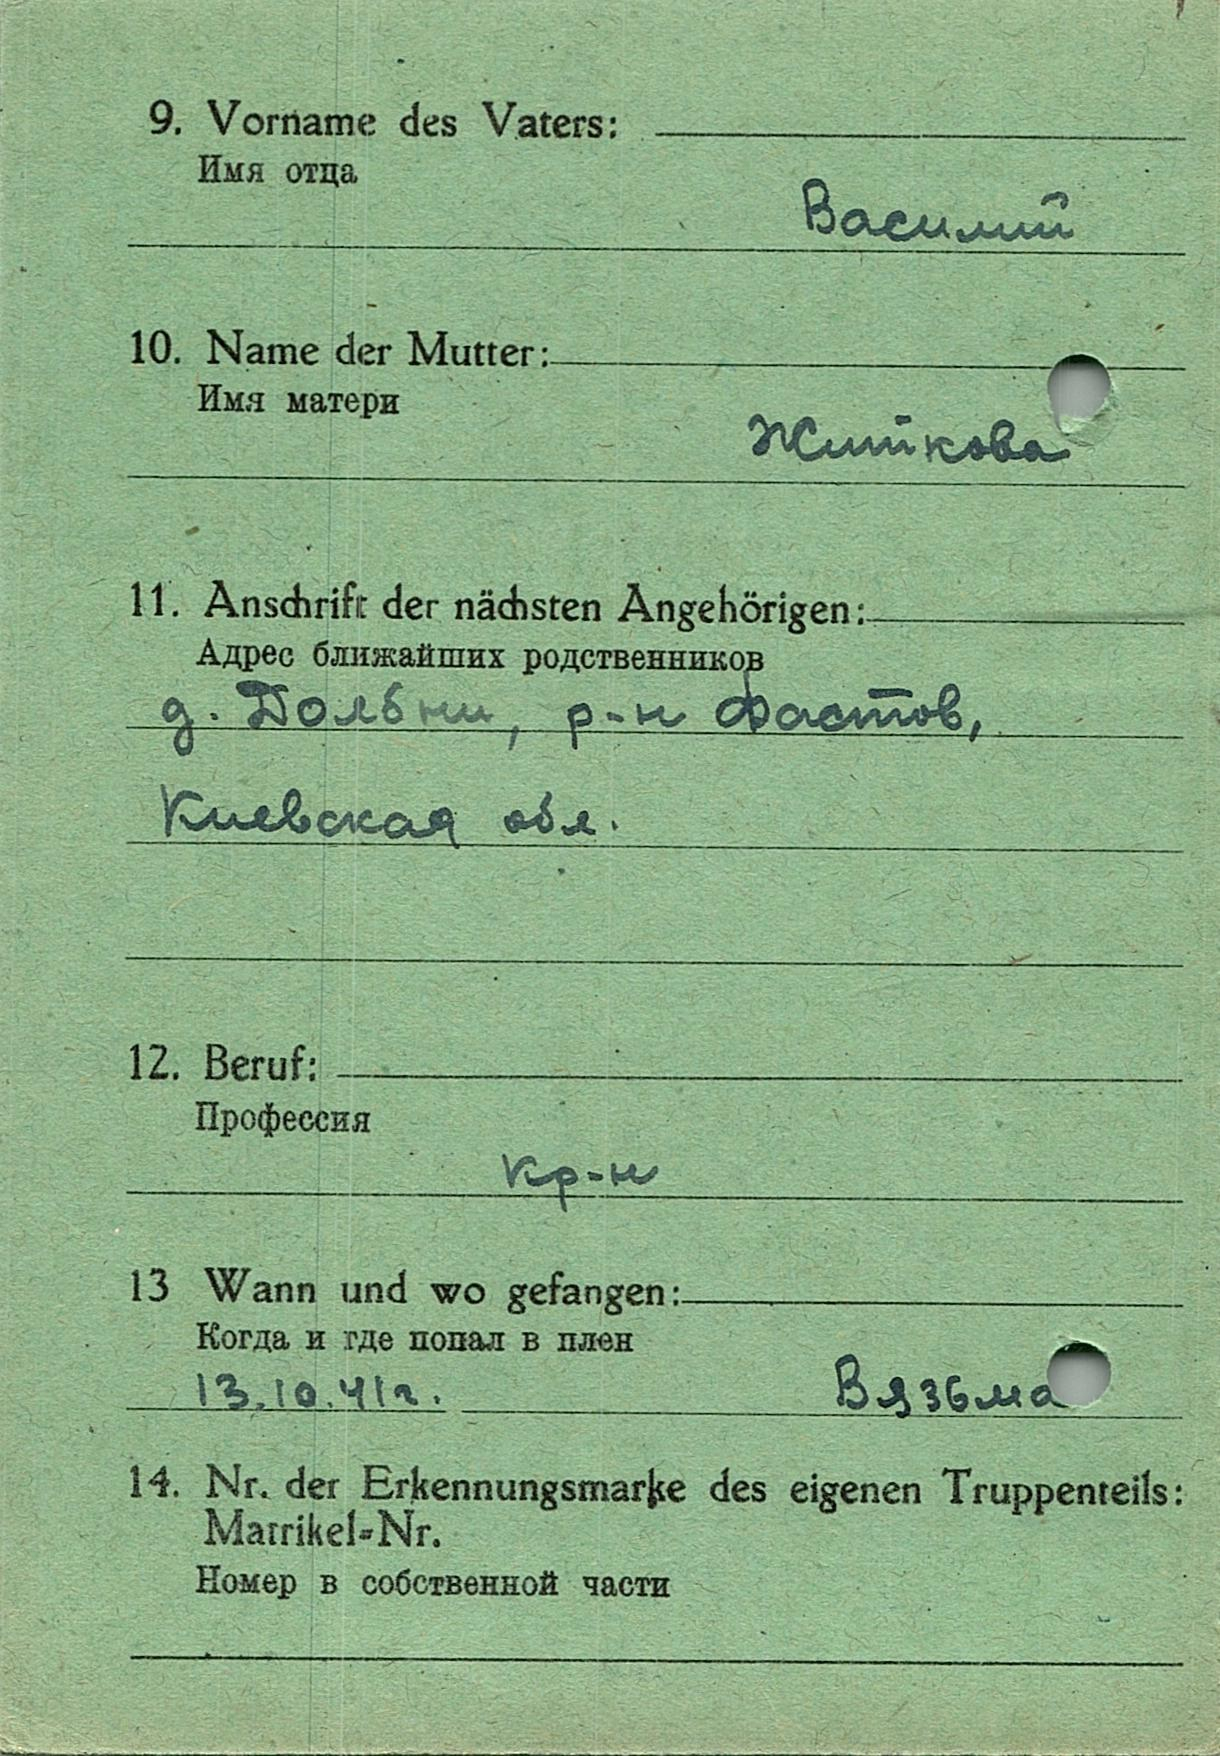 9. Vorname des Vaters:
Имя отца
Василий
10. Name der Mutter:
Имя матери
Житкова
11. Anschrift der nächsten Angehörigen:
Адрес ближайших родственников
д. Долбни, р-н Фастов,
Киевская обл.
12. Beruf:
Профессия
кр-н
13 Wann und wo gefangen:
Когда и где попал в плен
13.10.41г. Вязьма
14. Nr. der Erkennungsmarke des eigenen Truppenteils:
Matrikel-Nr.
Номер в собственной части